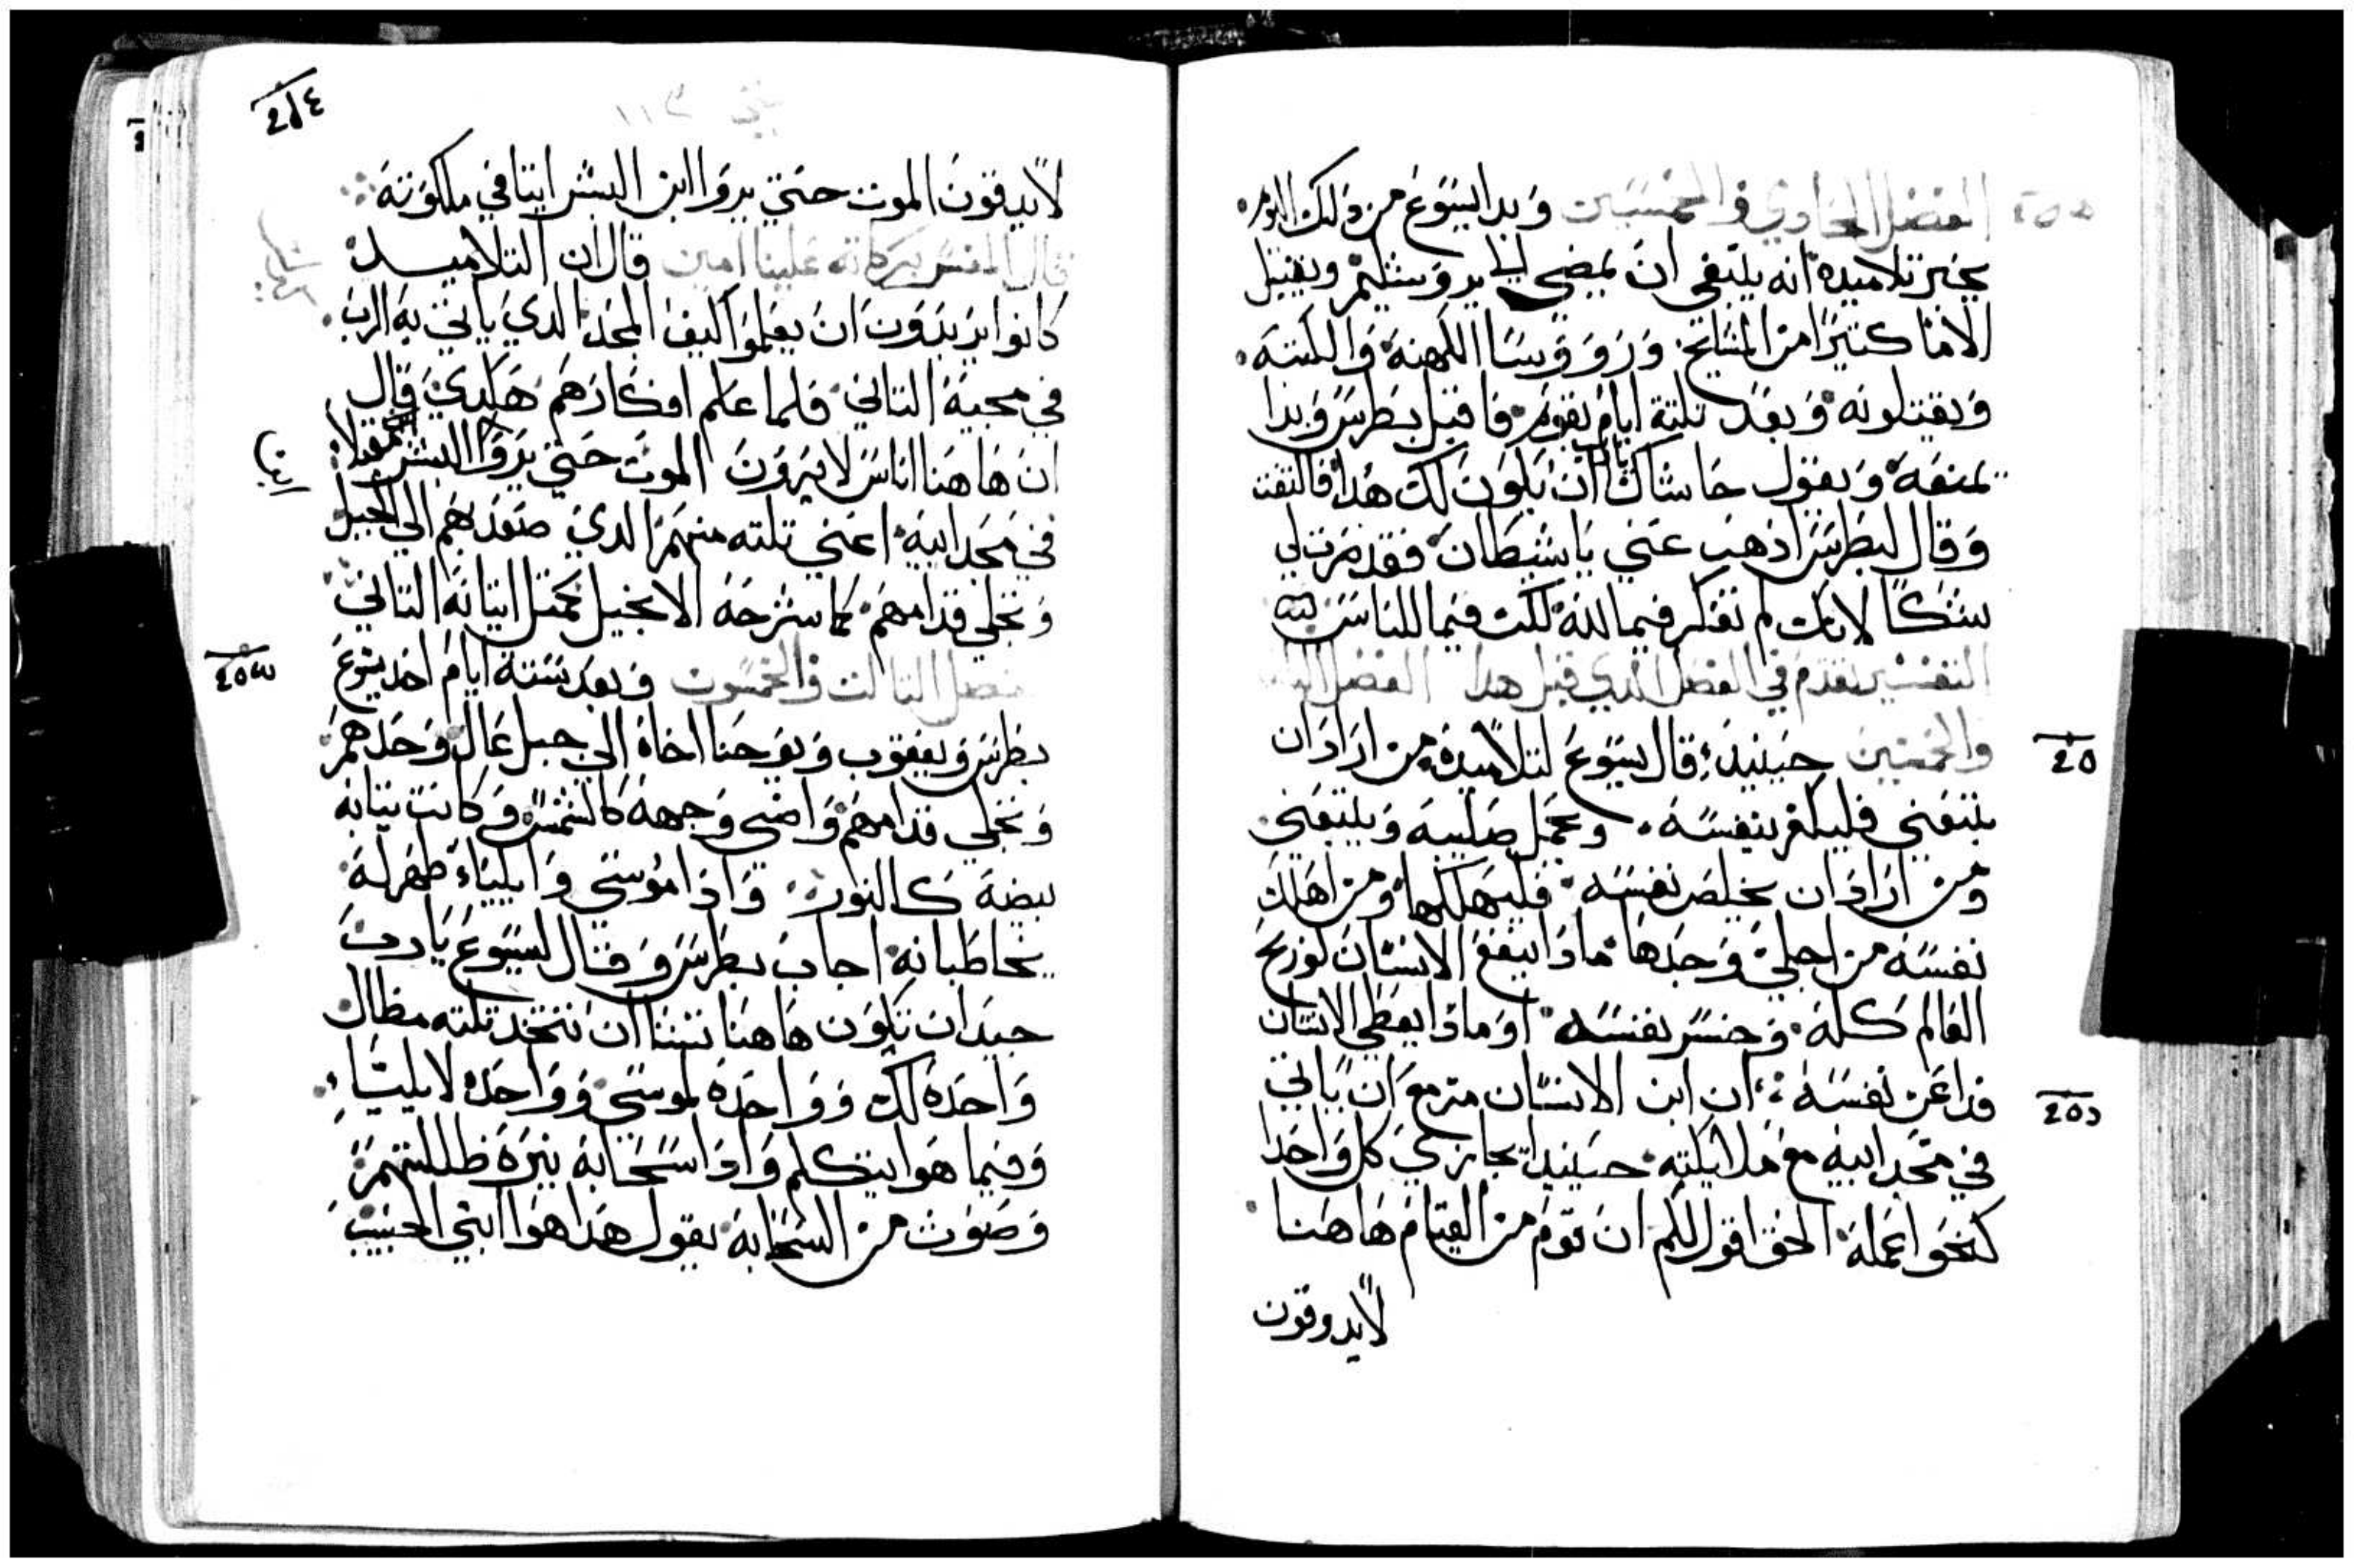 الفصل الحادي والخمسين وبدا يسوع من ذلك اليوم
يخبر تلاميذه انه يلتقي ان يمضي الي يروشليم ويقبل
الاما كتيرا من المشايخ وروووسا الكهنة والكتبة
ويقتلونه وبعد تلتة ايام يقوم فاقبل بطرس وبدا
يمنعه ويقول حاشاك يارب ان يكون لك هدا فالتفت
وقال لبطرس اذهب عني يا شيطان فقد صرت لي
شكا لانك لم تفكر فيما لله لكن فيما للناس
التفسير تقدم في الفصل الدي قبل هدا الفصل التاني
والخمسين حينيد قال يسوع لتلاميده من اراد ان
يتبعني فليكفر بنفسه ويحمل صليبه ويتبعني
ومن اراد ان يخلص نفسه فليهلكها ومن اهلك
نفسه من اجلي وجدها مادا ينفع الانسان لو ربح
العالم كله وخسر نفسه او مادا يعطي الانسان
فدا عن نفسه ان ابن الانسان مزمع ان ياتي
في مجد ابيه مع ملايكته حينيد يجازي كل واحدا
كنحو اعماله الحق اقول لكم ان قوم من القيام هاهنا
لايدوقون
لايدقون الموت حتي يروا ابن البشر اتيا في ملكوته
قال المفسر بركاته علينا امين قال ان التلاميد
كانوا يريدون ان يعلموا كيف المجد الدي ياتي به الرب
في مجيه التاني فلما علم افكارهم هكدي قال
ان هاهنا اناس لا يرون الموت حتي يروا البشر مقبلا
في مجد ابيه اعني تلته منهم الدي صعد بهم الي الجبل
وتجلي قدامهم كما سنشرحه الانجيل كمتل اتيانه التاني
الفصل التالت والخمسون وبعد ستة ايام اخد يسوع
بطرس ويعقوب ويوحنا اخاه الي جبل عال وحدهم
وتجلي قدامهم واضى وجهه كالشمس وكانت تيابه
بيضة كالنور واذا موسي وايلياء ظهر له
يخاطبانه اجاب بطرس وقال ليسوع يارب
جيد ان نكون هاهنا تشا ان نتخد تلته مظال
واحدة لك وواحدة لموسي وواحدة لايلياء
وفيما هو يتكلم واذا سحابة نيرة ظللتهم
وصوت من السحابة يقول هدا هو ابني الحبيب